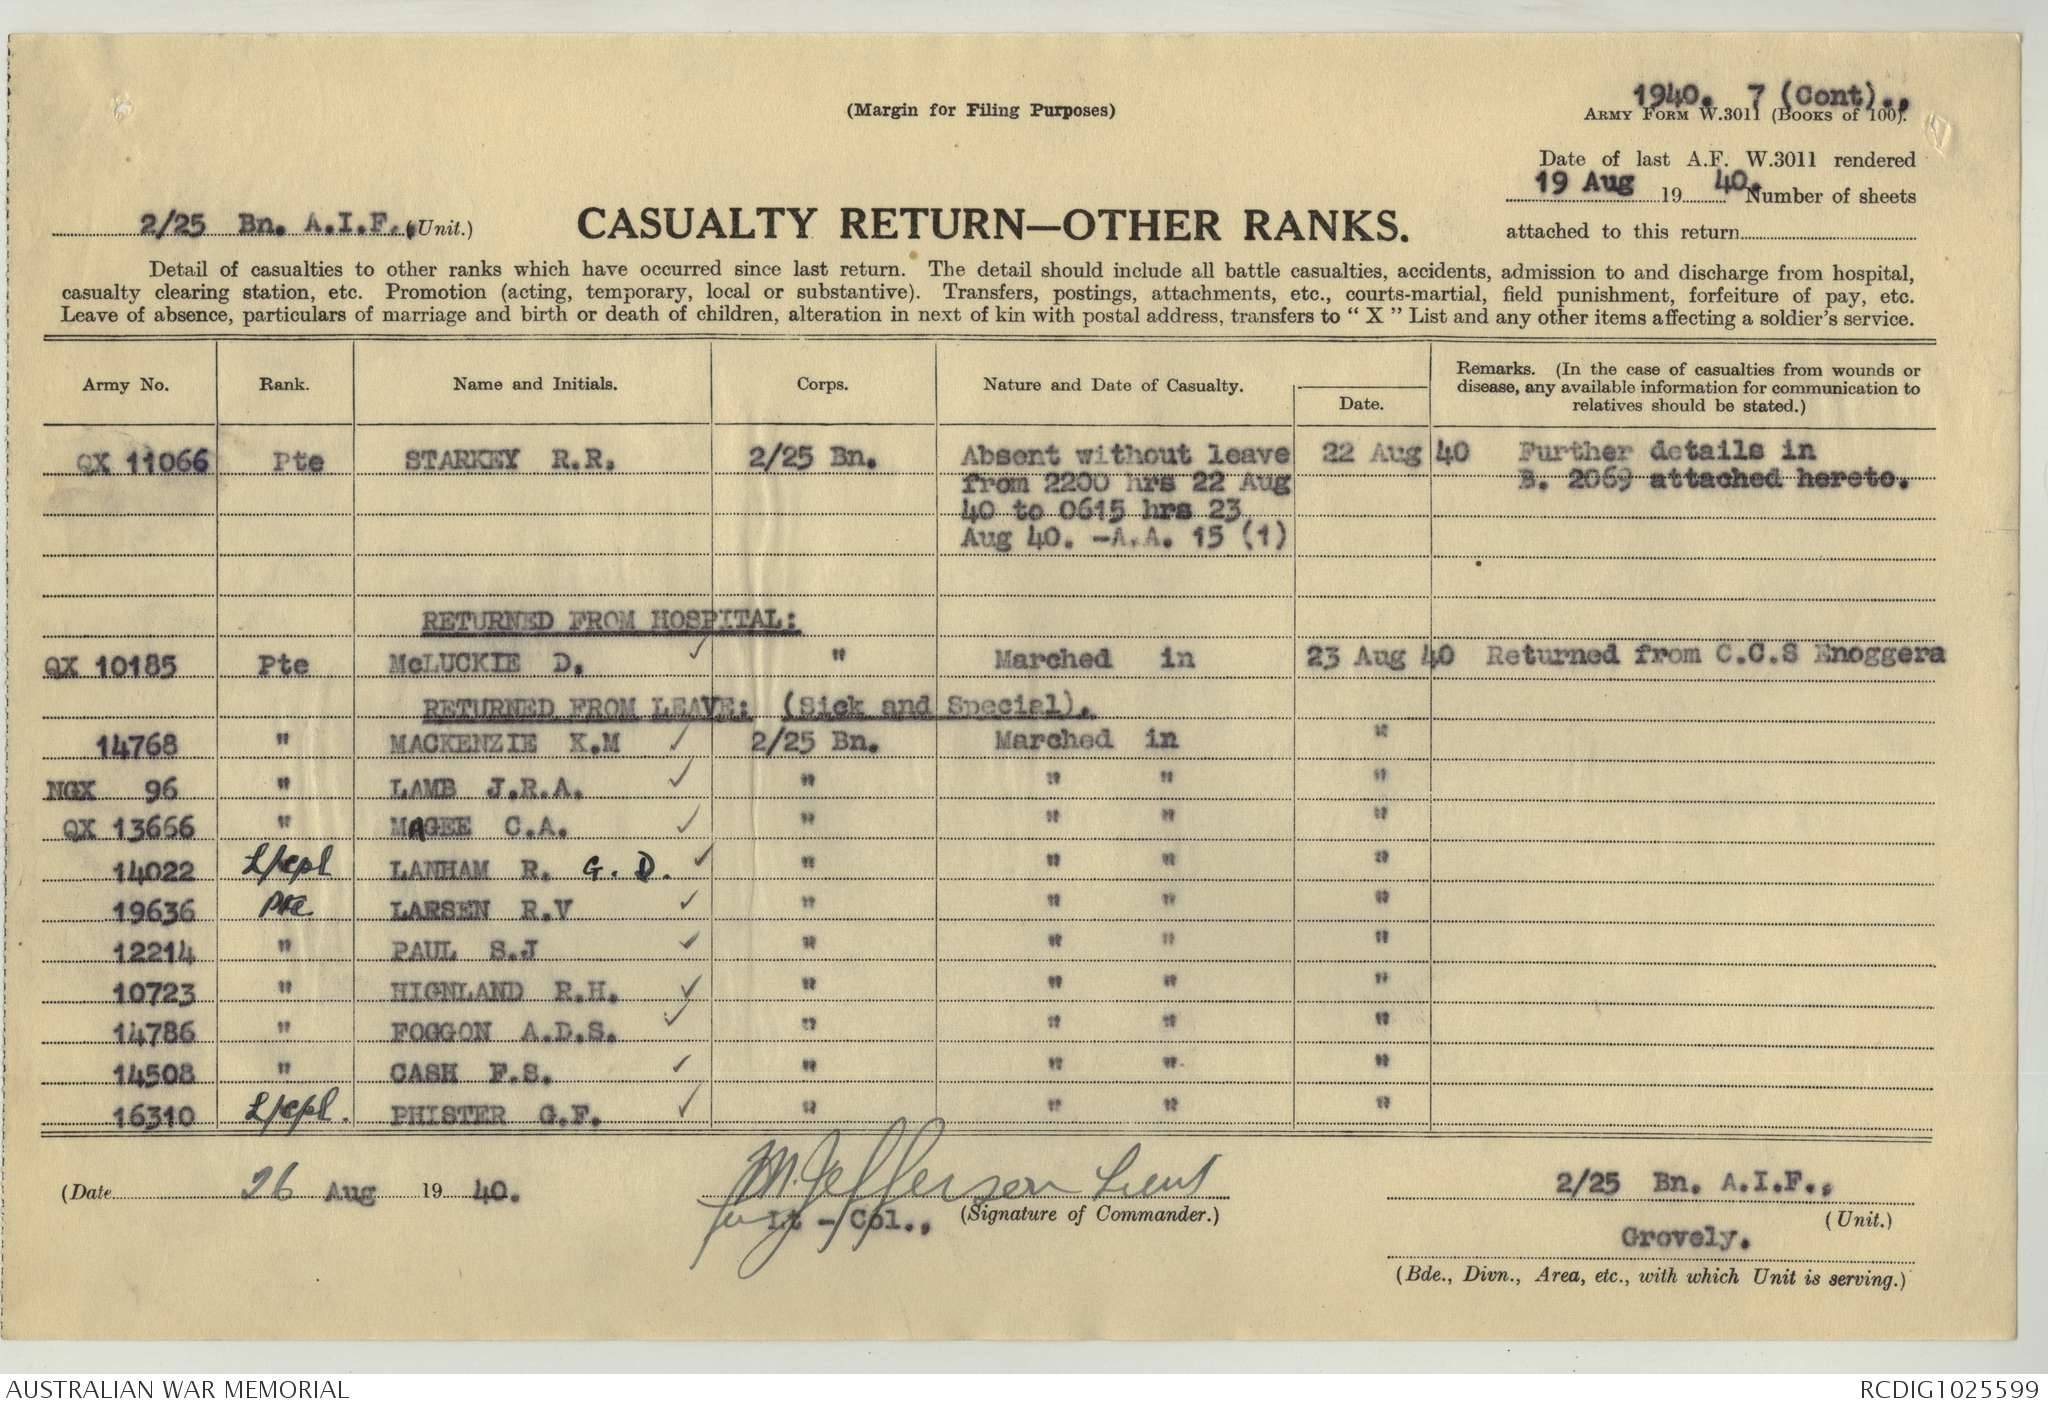 1940. 7 (Cont).,
(Margin for Filing Purposes)
ARMY FORM W.3011 (BOOKS OF 100).
Date of last A.F. W.3011 rendered
19 Aug 19 40. Number of sheets
attached to this return
2/25 Bn. A.I.F., (Unit.)
CASUALTY RETURN—OTHER RANKS.
Detail of casualties to other ranks which have occurred since last return. The detail should include all battle casualties, accidents, admission to and discharge from hospital,
casualty clearing station, etc. Promotion (acting, temporary, local or substantive). Transfers, postings, attachments, etc., courts-martial, field punishment, forfeiture of pay, etc.
Leave of absence, particulars of marriage and birth or death of children, alteration in next of kin with postal address, transfers to " X " List and any other items affecting a soldier's service.
Army No. Rank. Name and Initials. Corps. Nature and Date of Casualty. Date. Remarks. (In the case of casualties from wounds or
disease, any available information for communication to
relatives should be stated.)
QX 11066 Pte STARKEY R.R. 2/25 Bn. Absent without leave 22 Aug 40 Further details in
from 2200 hrs 22 Aug B. 2069 attached hereto.
40 to 0615 hrs 23
Aug 40. -A.A. 15 (1)
RETURNED FROM HOSPITAL:
QX 10185 Pte McLUCKIE D. " Marched in 23 Aug 40 Returned from C.C.S Enoggera
RETURNED FROM LEAVE: (Sick and Special).
14768 " MACKENZIE K.M 2/25 Bn. Marched in "
NGX 96 " LAMB J.R.A. " " " "
QX 13666 " MAGEE C.A. " " " "
14022 L/cpl LANHAM R. G. D. " " " "
19636 Pte. LARSEN R.V " " " "
12214 " PAUL S.J " " " "
10723 " HIGNLAND R.H. " " " "
14786 " FOGGON A.D.S. " " " "
14508 " CASH F.S. " " " "
16310 L/cpl. PHISTER G.F. " " " "
(Date 26 Aug 19 40.
M. Jefferson Lieut
for Lt - Col., (Signature of Commander.)
2/25 Bn. A.I.F.,
(Unit.)
Grovely.
(Bde., Divn., Area, etc., with which Unit is serving.)
AUSTRALIAN WAR MEMORIAL
RCDIG1025599